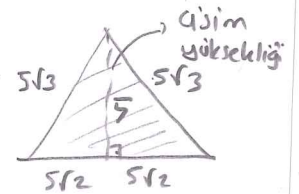 cisim
yüksekliği
5√3
5√3
5
5√2
5√2